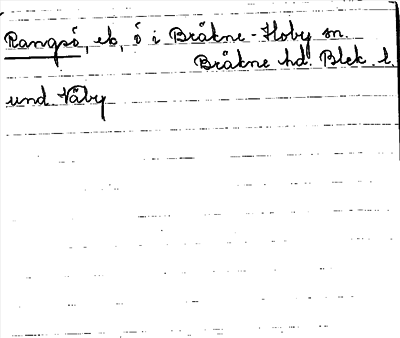 Rangsö, eb, ö i Bräkne-Hoby sn.
Bräkne hd. Blek. l.
und Väby